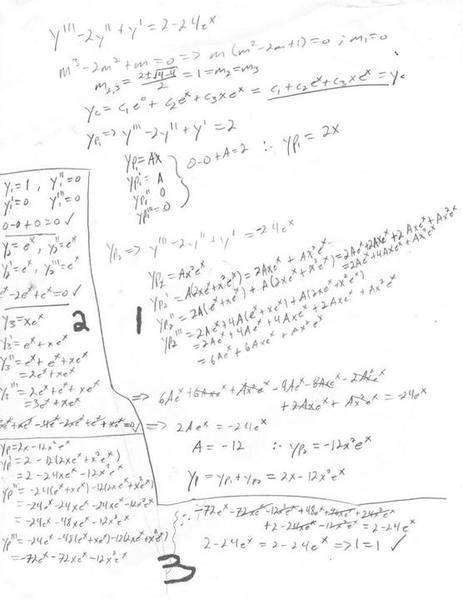 y''' - 2y'' + y' = 2 - 24e^x
m³ - 2m² + m = 0 => m(m² - 2m + 1) = 0; m₁ = 0
m₂,₃ = (2 ± √(4-4))/2 = 1 = m₂ = m₃
y_c = c₁e⁰ + c₂e^x + c₃xe^x = c₁ + c₂e^x + c₃xe^x = y_c
yp₁ => y''' - 2y'' + y' = 2
yp₁ = Ax
yp₁' = A
yp₁'' = 0
yp₁''' = 0
} 0 - 0 + A = 2 ∴ yp₁ = 2x
1
yp₂ => y''' - 2y'' + y' = -24e^x
yp₂ = Ax²e^x
yp₂' = A(2xe^x + x²e^x) = 2Axe^x + Ax²e^x
yp₂'' = 2A(e^x + xe^x) + A(2xe^x + x²e^x) = 2Ae^x + 2Axe^x + 2Axe^x + Ax²e^x
= 2Ae^x + 4Axe^x + Ax²e^x
yp₂''' = 2Ae^x + 4A(e^x + xe^x) + A(2xe^x + x²e^x)
= 2Ae^x + 4Ae^x + 4Axe^x + 2Axe^x + Ax²e^x
= 6Ae^x + 6Axe^x + Ax²e^x
=> 6Ae^x + 6Axe^x + Ax²e^x - 4Ae^x - 8Axe^x - 2Ax²e^x
+ 2Axe^x + Ax²e^x = -24e^x
=> 2Ae^x = -24e^x
A = -12 ∴ yp₂ = -12x²e^x
yp = yp₁ + yp₂ = 2x - 12x²e^x
2
y₁ = 1, y₁'' = 0
y₁' = 0, y₁''' = 0
0 - 0 + 0 = 0 ✓
y₂ = e^x, y₂'' = e^x
y₂' = e^x, y₂''' = e^x
e^x - 2e^x + e^x = 0 ✓
y₃ = xe^x
y₃' = e^x + xe^x
y₃'' = e^x + e^x + xe^x
= 2e^x + xe^x
y₃''' = 2e^x + e^x + xe^x
= 3e^x + xe^x
3e^x + xe^x - 4e^x - 2xe^x + e^x + xe^x = 0 ✓
yp = 2x - 12x²e^x
yp' = 2 - 12(2xe^x + x²e^x)
= 2 - 24xe^x - 12x²e^x
yp'' = -24(e^x + xe^x) - 12(2xe^x + x²e^x)
= -24e^x - 24xe^x - 24xe^x - 12x²e^x
= -24e^x - 48xe^x - 12x²e^x
yp''' = -24e^x - 48(e^x + xe^x) - 12(2xe^x + x²e^x)
= -72e^x - 72xe^x - 12x²e^x
3
∴ -72e^x - 72xe^x - 12x²e^x + 48e^x + 96xe^x + 24x²e^x
+ 2 - 24xe^x - 12x²e^x = 2 - 24e^x
2 - 24e^x = 2 - 24e^x => 1 = 1 ✓